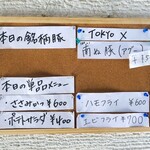 本日の銘柄豚
TOKYO X
南ぬ豚(アグー)
本日の単品メニュー
・ささみかつ ¥600
・ポテトサラダ ¥400
ハモフライ ¥600
エビフライ ¥700